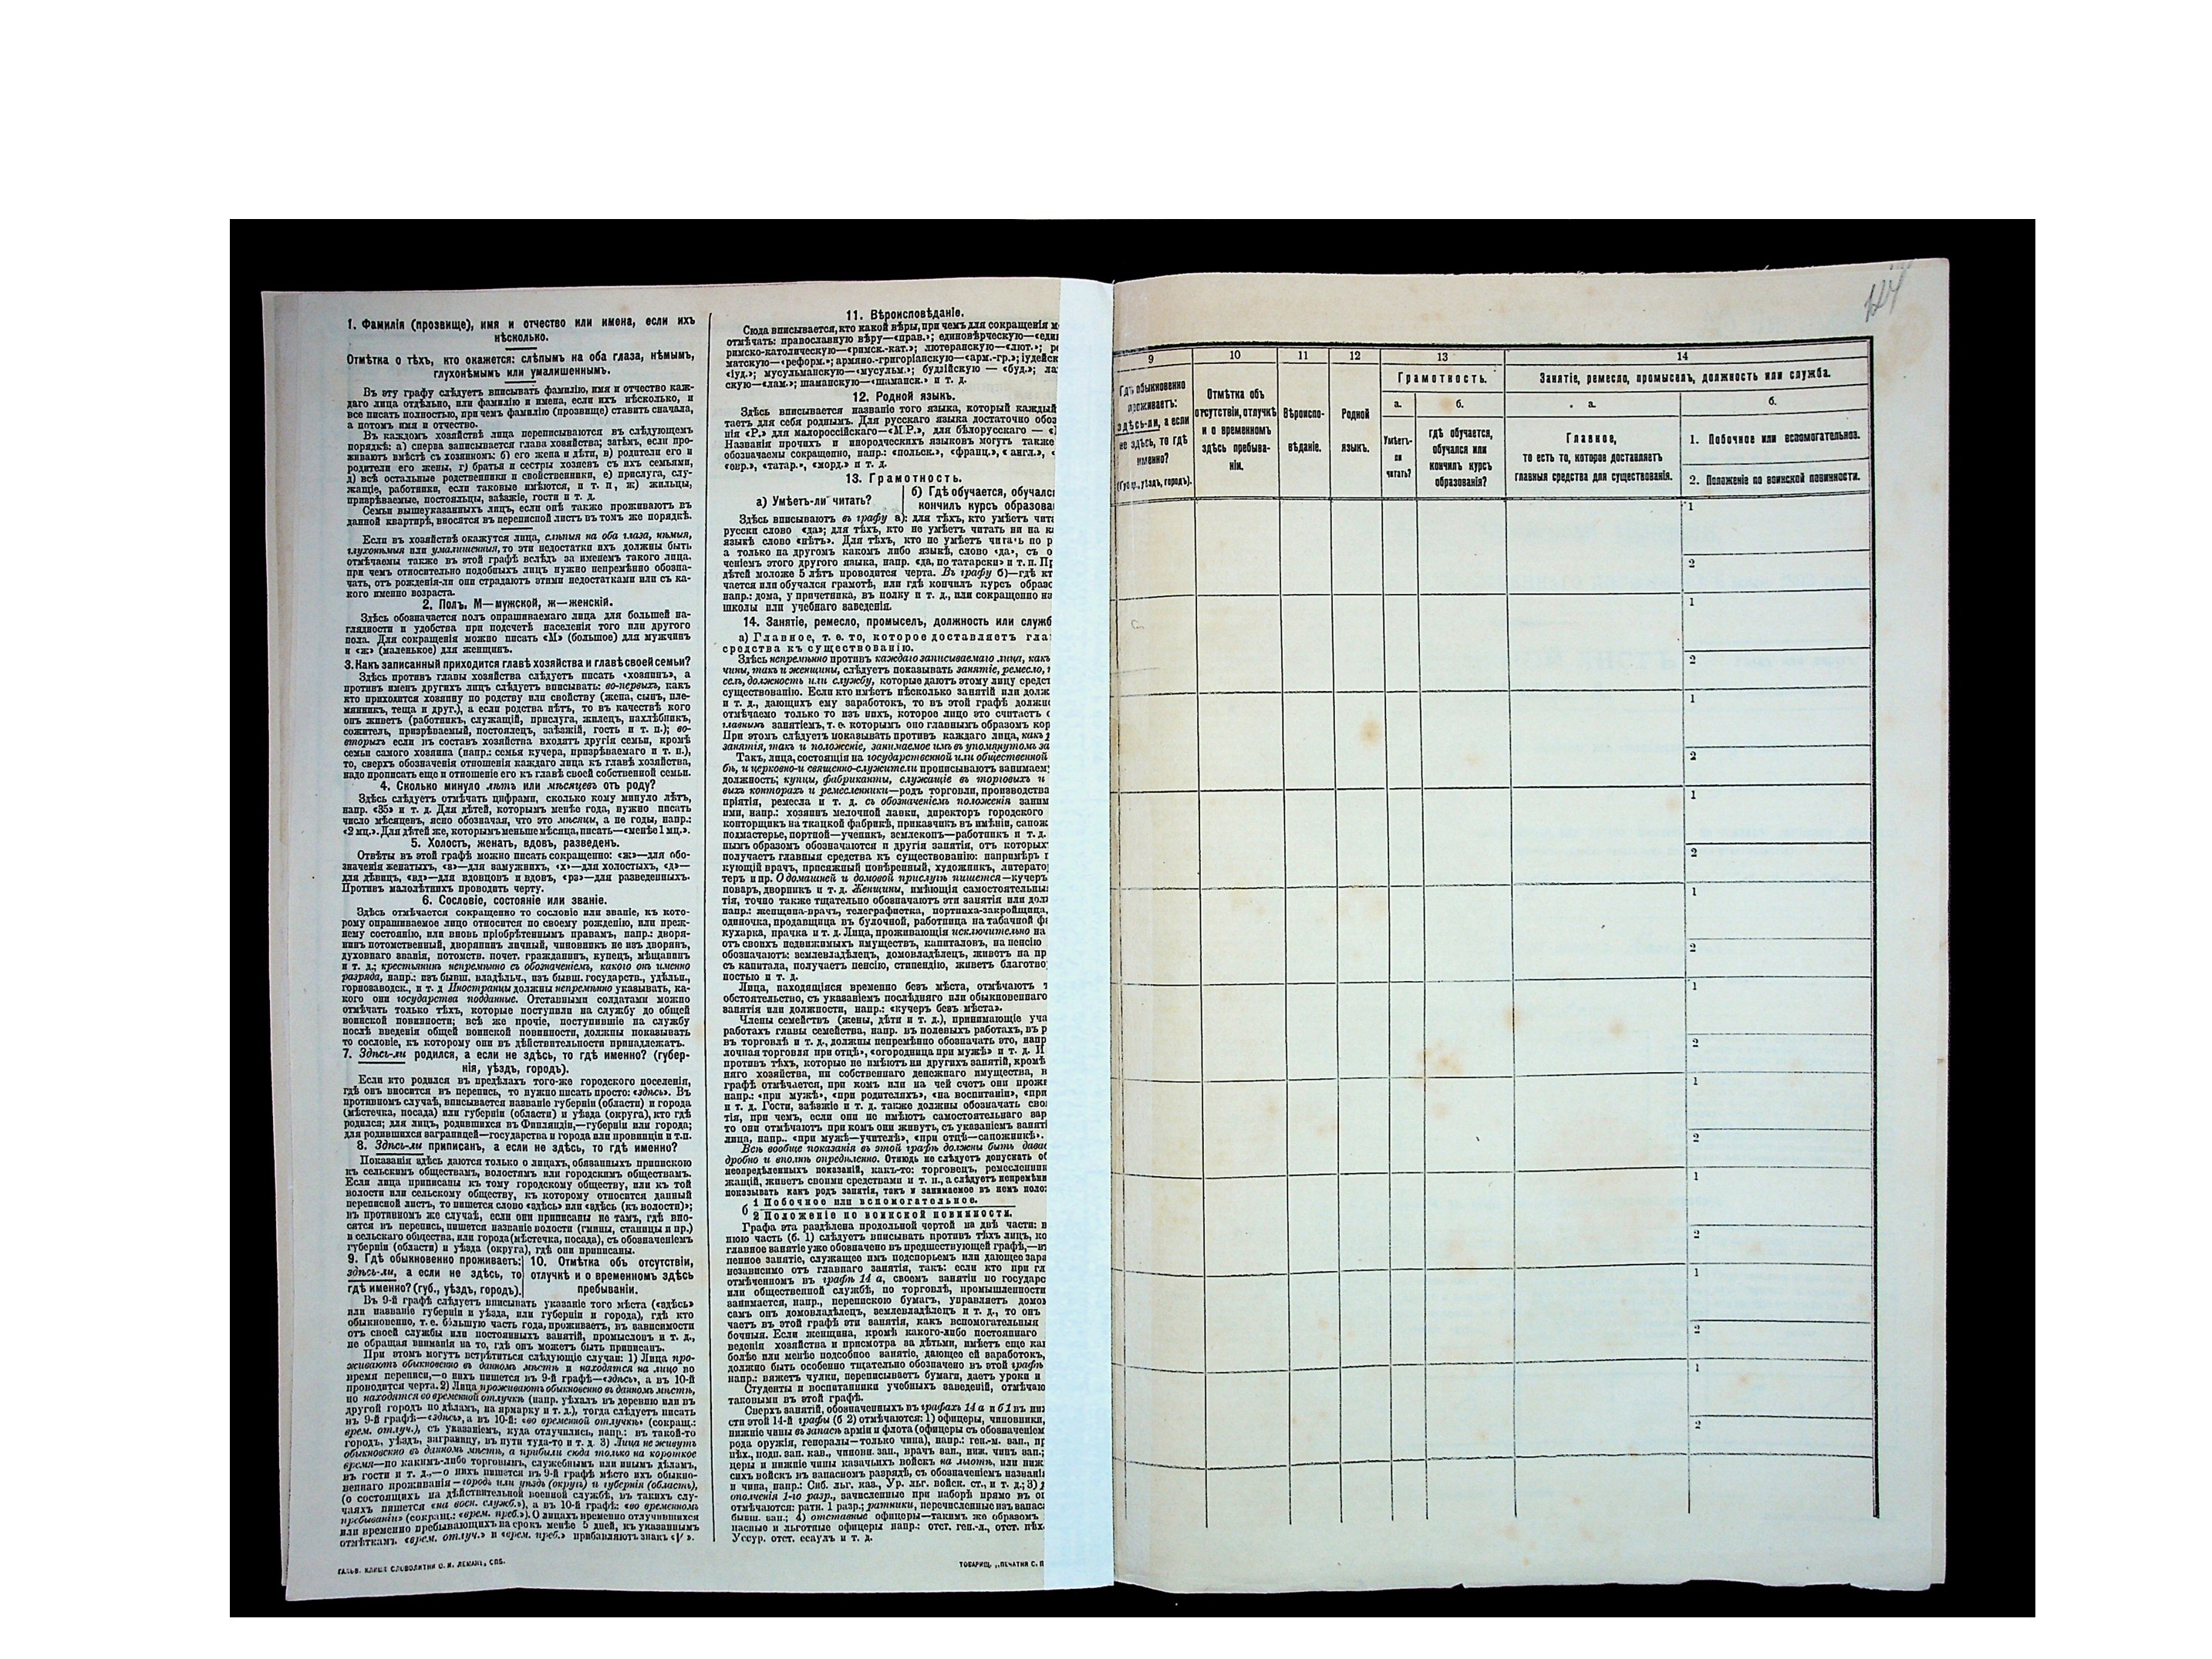 1. Фамилія (прозвище), имя и отчество или имена, если ихъ
нѣсколько.
Отмѣтка о тѣхъ, кто окажется: слѣпымъ на оба глаза, нѣмымъ,
глухонѣмымъ или умалишеннымъ.
Въ эту графу слѣдуетъ вписывать фамилію, имя и отчество каж-
даго лица отдѣльно, или фамилію и имена, если ихъ нѣсколько, и
все писать полностью, при чемъ фамилію (прозвище) ставить сначала,
а потомъ имя и отчество.
Въ каждомъ хозяйствѣ лица переписываются въ слѣдующемъ
порядкѣ: а) сперва записывается глава хозяйства; затѣмъ, если про-
живаютъ вмѣстѣ съ хозяиномъ: б) его жена и дѣти, в) родители его и
родители его жены, г) братья и сестры хозяевъ съ ихъ семьями,
д) всѣ остальные родственники и свойственники, е) прислуга, слу-
жащіе, работники, если таковые имѣются, и т. п, ж) жильцы,
призрѣваемые, постояльцы, заѣзжіе, гости и т. д.
Семьи вышеуказанныхъ лицъ, если онѣ также проживаютъ въ
данной квартирѣ, вносятся въ переписной листъ въ томъ же порядкѣ.
Если въ хозяйствѣ окажутся лица, слѣпыя на оба глаза, нѣмыя,
глухонѣмыя или умалишенныя, то эти недостатки ихъ должны быть
отмѣчаемы также въ этой графѣ вслѣдъ за именемъ такого лица.
при чемъ относительно подобныхъ лицъ нужно непремѣнно обозна-
чать, отъ рожденія-ли они страдаютъ этими недостатками или съ ка-
кого именно возраста.
2. Полъ. М—мужской, ж—женскій.
Здѣсь обозначается полъ опрашиваемаго лица для большей на-
глядности и удобства при подсчетѣ населенія того или другого
пола. Для сокращенія можно писать «М» (большое) для мужчинъ
и «ж» (маленькое) для женщинъ.
3. Какъ записанный приходится главѣ хозяйства и главѣ своей семьи?
Здѣсь противъ главы хозяйства слѣдуетъ писать «хозяинъ», а
противъ именъ другихъ лицъ слѣдуетъ вписывать: во-первыхъ, какъ
кто приходится хозяину по родству или свойству (жена, сынъ, пле-
мянникъ, теща и друг.), а если родства нѣтъ, то въ качествѣ кого
онъ живетъ (работникъ, служащій, прислуга, жилецъ, нахлѣбникъ,
сожитель, призрѣваемый, постоялецъ, заѣзжій, гость и т. п.); во-
вторыхъ если въ составъ хозяйства входятъ другія семьи, кромѣ
семьи самого хозяина (напр.: семья кучера, призрѣваемаго и т. п.),
то, сверхъ обозначенія отношенія каждаго лица къ главѣ хозяйства,
надо прописать еще и отношеніе его къ главѣ своей собственной семьи.
4. Сколько минуло лѣтъ или мѣсяцевъ отъ роду?
Здѣсь слѣдуетъ отмѣчать цифрами, сколько кому минуло лѣтъ,
напр. «35» и т. д. Для дѣтей, которымъ менѣе года, нужно писать
число мѣсяцевъ, ясно обозначая, что это мѣсяцы, а не годы, напр.:
«2 мц.». Для дѣтей же, которымъ меньше мѣсяца, писать—«менѣе 1 мц.».
5. Холостъ, женатъ, вдовъ, разведенъ.
Отвѣты въ этой графѣ можно писать сокращенно: «ж»—для обо-
значенія женатыхъ, «з»—для замужнихъ, «х»—для холостыхъ, «д»—
для дѣвицъ, «вд»—для вдовцовъ и вдовъ, «рз»—для разведенныхъ.
Противъ малолѣтнихъ проводить черту.
6. Сословіе, состояніе или званіе.
Здѣсь отмѣчается сокращенно то сословіе или званіе, къ кото-
рому опрашиваемое лицо относится по своему рожденію, или преж-
нему состоянію, или вновь пріобрѣтеннымъ правамъ, напр.: дворя-
нинъ потомственный, дворянинъ личный, чиновникъ не изъ дворянъ,
духовнаго званія, потомств. почет. гражданинъ, купецъ, мѣщанинъ
и т. д.; крестьянинъ непремѣнно съ обозначеніемъ, какого онъ именно
разряда, напр.: изъ бывш. владѣльч., изъ бывш. государств., удѣльн.,
горнозаводск., и т. д Иностранцы должны непремѣнно указывать, ка-
кого они государства подданные. Отставными солдатами можно
отмѣчать только тѣхъ, которые поступили на службу до общей
воинской повинности; всѣ же прочіе, поступившіе на службу
послѣ введенія общей воинской повинности, должны показывать
то сословіе, къ которому они въ дѣйствительности принадлежатъ.
7. Здѣсь-ли родился, а если не здѣсь, то гдѣ именно? (губер-
нія, уѣздъ, городъ).
Если кто родился въ предѣлахъ того-же городского поселенія,
гдѣ онъ вносится въ перепись, то нужно писать просто: «здѣсь». Въ
противномъ случаѣ, вписывается названіе губерніи (области) и города
(мѣстечка, посада) или губерніи (области) и уѣзда (округа), кто гдѣ
родился; для лицъ, родившихся въ Финляндіи,—губерніи или города;
для родившихся заграницей—государства и города или провинціи и т.п.
8. Здѣсь-ли приписанъ, а если не здѣсь, то гдѣ именно?
Показанія здѣсь даются только о лицахъ, обязанныхъ припискою
къ сельскимъ обществамъ, волостямъ или городскимъ обществамъ.
Если лица приписаны къ тому городскому обществу, или къ той
волости или сельскому обществу, къ которому относится данный
переписной листъ, то пишется слово «здѣсь» или «здѣсь (къ волости)»;
въ противномъ же случаѣ, если они приписаны не тамъ, гдѣ вно-
сятся въ перепись, пишется названіе волости (гмины, станицы и пр.)
и сельскаго общества, или города (мѣстечка, посада), съ обозначеніемъ
губерніи (области) и уѣзда (округа), гдѣ они приписаны.
9. Гдѣ обыкновенно проживаетъ:
здѣсь-ли, а если не здѣсь, то
гдѣ именно? (губ., уѣздъ, городъ).
10. Отмѣтка объ отсутствіи,
отлучкѣ и о временномъ здѣсь
пребываніи.
Въ 9-й графѣ слѣдуетъ вписывать указаніе того мѣста («здѣсь»
или названіе губерніи и уѣзда, или губерніи и города), гдѣ кто
обыкновенно, т. е. бо́льшую часть года, проживаетъ, въ зависимости
отъ своей службы или постоянныхъ занятій, промысловъ и т. д.,
не обращая вниманія на то, гдѣ онъ можетъ быть приписанъ.
При этомъ могутъ встрѣтиться слѣдующіе случаи: 1) Лица про-
живаютъ обыкновенно въ данномъ мѣстѣ и находятся на лицо во
время переписи,—о нихъ пишется въ 9-й графѣ—«здѣсь», а въ 10-й
проводится черта. 2) Лица проживаютъ обыкновенно въ данномъ мѣстѣ,
но находятся во временной отлучкѣ (напр. уѣхалъ въ деревню или въ
другой городъ по дѣламъ, на ярмарку и т. д.), тогда слѣдуетъ писать
въ 9-й графѣ—«здѣсь», а въ 10-й: «во временной отлучкѣ» (сокращ.:
врем. отлуч.), съ указаніемъ, куда отлучились, напр.: въ такой-то
городъ, уѣздъ, заграницу, въ пути туда-то и т. д. 3) Лица не живутъ
обыкновенно въ данномъ мѣстѣ, а прибыли сюда только на короткое
время—по какимъ-либо торговымъ, служебнымъ или инымъ дѣламъ,
въ гости и т. д.,—о нихъ пишется въ 9-й графѣ мѣсто ихъ обыкно-
веннаго проживанія—городъ или уѣздъ (округъ) и губернія (область),
(о состоящихъ на дѣйствительной военной службѣ, въ такихъ слу-
чаяхъ пишется «на воен. служб.»), а въ 10-й графѣ: «во временномъ
пребываніи» (сокращ.: «врем. преб.»). О лицахъ временно отлучившихся
или временно пребывающихъ на срокъ менѣе 5 дней, къ указаннымъ
отмѣткамъ «врем. отлуч.» и «врем. преб.» прибавляютъ знакъ «V».
ГАЛЬВ. КЛИШЕ СЛОВОЛИТНИ О. И. ЛЕМАНЪ, СПБ.
11. Вѣроисповѣданіе.
Сюда вписывается, кто какой вѣры, при чемъ для сокращенія м
отмѣчать: православную вѣру—«прав.»; единовѣрческую—«еди
римско-католическую—«римск.-кат.»; лютеранскую—«лют.»; р
матскую—«реформ.»; армяно.-григоріанскую—«арм.-гр.»; іудейск
«іуд.»; мусульманскую—«мусульм.»; буддійскую — «буд.»; ла
скую—«лам.»; шаманскую—«шаманск.» и т. д.
12. Родной языкъ.
Здѣсь вписывается названіе того языка, который каждый
таетъ для себя роднымъ. Для русскаго языка достаточно обоз
нія «Р.» для малороссійскаго—«М Р.», для бѣлорусскаго — «
Названія прочихъ и инородческихъ языковъ могутъ также
обозначаемы сокращенно, напр.: «польск.», «франц.», «англ.», «
«евр.», «татар.», «морд.» и т. д.
13. Грамотность.
а) Умѣетъ-ли читать?
б) Гдѣ обучается, обучалс
кончилъ курсъ образова
Здѣсь вписываютъ въ графу а): для тѣхъ, кто умѣетъ чита
русски слово «да»; для тѣхъ, кто не умѣетъ читать ни на ка
языкѣ слово «нѣтъ». Для тѣхъ, кто не умѣетъ читать по р
а только на другомъ какомъ либо языкѣ, слово «да», съ о
ченіемъ этого другого языка, напр. «да, по татарски» и т. п. Пр
дѣтей моложе 5 лѣтъ проводится черта. Въ графу б)—гдѣ кт
чается или обучался грамотѣ, или гдѣ кончилъ курсъ образо
напр.: дома, у причетника, въ полку и т. д., или сокращенно на
школы или учебнаго заведенія.
14. Занятіе, ремесло, промыселъ, должность или служб
а) Главное, т. е. то, которое доставляетъ гла
средства къ существованію.
Здѣсь непремѣнно противъ каждаго записываемаго лица, какъ
чины, такъ и женщины, слѣдуетъ показывать занятіе, ремесло,
селъ, должность или службу, которые даютъ этому лицу средст
существованію. Если кто имѣетъ нѣсколько занятій или долж
и т. д., дающихъ ему заработокъ, то въ этой графѣ должно
отмѣчаемо только то изъ нихъ, которое лицо это считаетъ с
главнымъ занятіемъ, т. е. которымъ оно главнымъ образомъ кор
При этомъ слѣдуетъ показывать противъ каждаго лица, какъ
занятія, такъ и положеніе, занимаемое имъ въ упомянутомъ за
Такъ, лица, состоящія на государственной или общественной
бѣ, и церковно-и священно-служители прописываютъ занимаему
должность; купцы, фабриканты, служащіе въ торговыхъ и
выхъ конторахъ и ремесленники—родъ торговли, производства
пріятія, ремесла и т. д. съ обозначеніемъ положенія заним
ими, напр.: хозяинъ мелочной лавки, директоръ городского
конторщикъ на ткацкой фабрикѣ, приказчикъ въ имѣніи, сапож
подмастерье, портной—ученикъ, землекопъ—работникъ и т. д.
нымъ образомъ обозначаются и другія занятія, отъ которыхъ
получаетъ главныя средства къ существованію: напримѣръ п
кующій врачъ, присяжный повѣренный, художникъ, литерато
теръ и пр. О домашней и домовой прислугѣ пишется—кучеръ
поваръ, дворникъ и т. д. Женщины, имѣющія самостоятельны
тія, точно также тщательно обозначаютъ эти занятія или дол
напр.: женщина-врачъ, телеграфистка, портниха-закройщица,
одиночка, продавщица въ булочной, работница на табачной фа
кухарка, прачка и т. д. Лица, проживающія исключительно на
отъ своихъ недвижимыхъ имуществъ, капиталовъ, на пенсію
обозначаютъ: землевладѣлецъ, домовладѣлецъ, живетъ на пр
съ капитала, получаетъ пенсію, стипендію, живетъ благотво
ностью и т. д.
Лица, находящіяся временно безъ мѣста, отмѣчаютъ т
обстоятельство, съ указаніемъ послѣдняго или обыкновеннаго
занятія или должности, напр.: «кучеръ безъ мѣста».
Члены семействъ (жены, дѣти и т. д.), принимающіе уча
работахъ главы семейства, напр. въ полевыхъ работахъ, въ р
въ торговлѣ и т. д., должны непремѣнно обозначать это, напр
лочная торговля при отцѣ», «огородница при мужѣ» и т. д. И
противъ тѣхъ, которые не имѣютъ ни другихъ занятій, кромѣ
няго хозяйства, ни собственнаго денежнаго имущества, в
графѣ отмѣчается, при комъ или на чей счетъ они прожи
напр.: «при мужѣ», «при родителяхъ», «на воспитаніи», «при
и т. д. Гости, заѣзжіе и т. д. также должны обозначать сво
тія, при чемъ, если они не имѣютъ самостоятельнаго зар
то они отмѣчаютъ при комъ они живутъ, съ указаніемъ заняті
лица, напр.. «при мужѣ—учителѣ», «при отцѣ—сапожникѣ».
Всѣ вообще показанія въ этой графѣ должны быть давае
дробно и вполнѣ опредѣленно. Отнюдь не слѣдуетъ допускать об
неопредѣленныхъ показаній, какъ-то: торговецъ, ремесленник
жащій, живетъ своими средствами и т. п., а слѣдуетъ непремѣнн
показывать какъ родъ занятія, такъ и занимаемое въ немъ поло
б
1 Побочное или вспомогательное.
2 Положеніе по воинской повинности.
Графа эта раздѣлена продольной чертой на двѣ части: в
нюю часть (б. 1) слѣдуетъ вписывать противъ тѣхъ лицъ, ко
главное занятіе уже обозначено въ предшествующей графѣ,—вт
пенное занятіе, служащее имъ подспорьемъ или дающее зара
независимо отъ главнаго занятія, такъ: если кто при гл
отмѣченномъ въ графѣ 14 а, своемъ занятіи по государс
или общественной службѣ, по торговлѣ, промышленности
занимается, напр., перепискою бумагъ, управляетъ домо
самъ онъ домовладѣлецъ, землевладѣлецъ и т. д., то онъ
чаетъ въ этой графѣ эти занятія, какъ вспомогательныя
бочныя. Если женщина, кромѣ какого-либо постояннаго
веденія хозяйства и присмотра за дѣтьми, имѣетъ еще как
болѣе или менѣе подсобное занятіе, дающее ей заработокъ,
должно быть особенно тщательно обозначено въ этой графѣ
напр.: вяжетъ чулки, переписываетъ бумаги, даетъ уроки и
Студенты и воспитанники учебныхъ заведеній, отмѣчаю
таковыми въ этой графѣ.
Сверхъ занятій, обозначенныхъ въ графахъ 14 а и б1 въ ниж
сти этой 14-й графы (б 2) отмѣчаются: 1) офицеры, чиновники,
нижніе чины въ запасѣ арміи и флота (офицеры съ обозначеніем
рода оружія, генералы—только чина), напр.: ген.-м. зап., пр
пѣх., подп. зап. кав., чиновн. зап., врачъ зап., ниж. чинъ зап.;
церы и нижніе чины казачьихъ войскъ на льготѣ, или ниж
сихъ войскъ въ запасномъ разрядѣ, съ обозначеніемъ названія
и чина, напр.: Сиб. льг. каз., Ур. льг. войск. ст., и т. д.; 3)
ополченія 1-го разр., зачисленные при наборѣ прямо въ оп
отмѣчаются: ратн. 1 разр.; ратники, перечисленные изъ запаса
бывш. зап.; 4) отставные офицеры—такимъ же образомъ
пасные и льготные офицеры напр.: отст. ген.-л., отст. пѣх.
Уссур. отст. есаулъ и т. д.
ТОВАРИЩ. „ПЕЧАТНЯ С. П
9
10
11
12
13
14
Гдѣ обыкновенно
проживаетъ:
здѣсь-ли, а если
не здѣсь, то гдѣ
именно?
(Губер., уѣздъ, городъ).
Отмѣтка объ
отсутствіи, отлучкѣ
и о временномъ
здѣсь пребыва-
ніи.
Вѣроиспо-
вѣданіе.
Родной
языкъ.
Грамотность.
а.
б.
Умѣетъ-
ли
читать?
гдѣ обучается,
обучался или
кончилъ курсъ
образованія?
Занятіе, ремесло, промыселъ, должность или служба.
а.
б.
Главное,
то есть то, которое доставляетъ
главныя средства для существованія.
1. Побочное или вспомогательное.
2. Положеніе по воинской повинности.
1
2
1
2
1
2
1
2
1
2
1
2
1
2
1
2
1
2
1
2